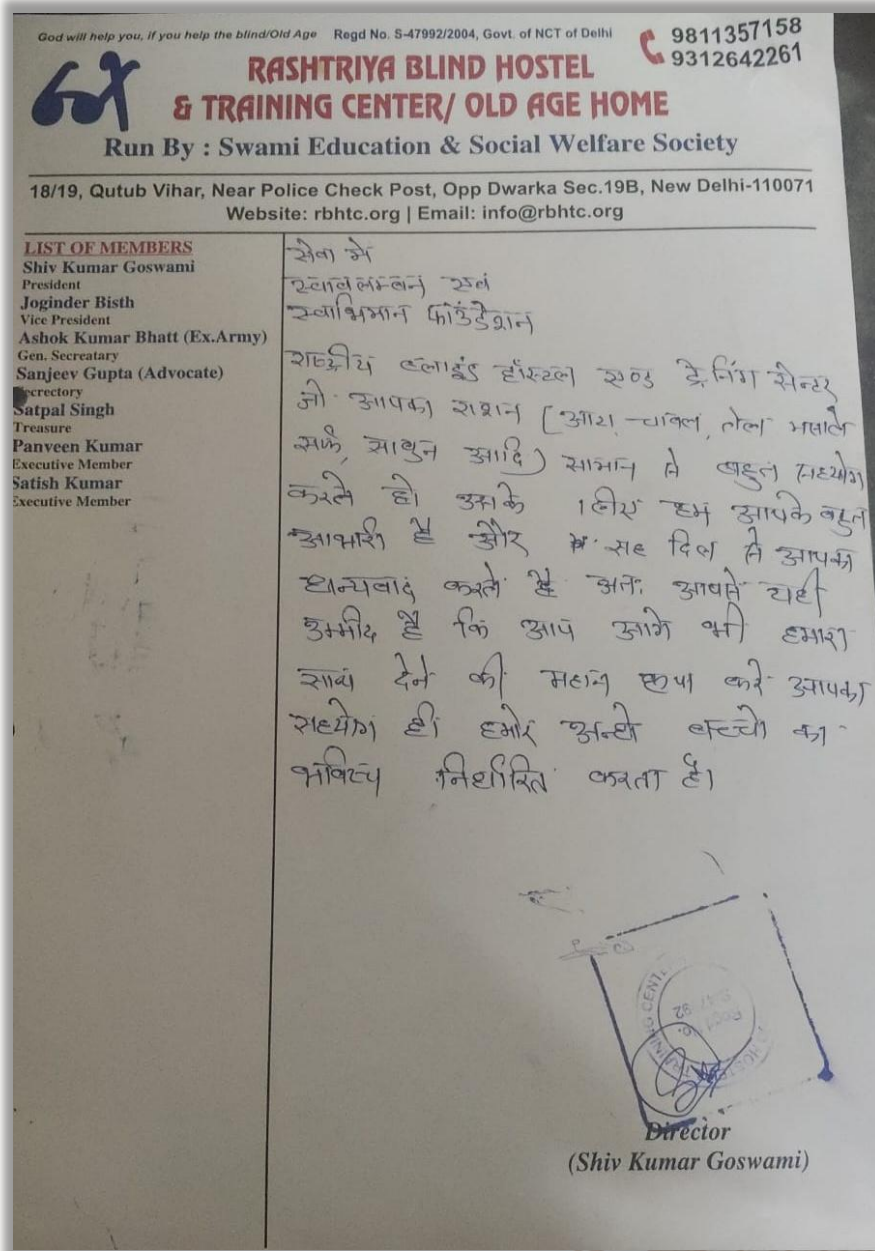 God will help you, if you help the blind/Old Age Regd No. S-47992/2004, Govt. of NCT of Delhi
9811357158
9312642261
RASHTRIYA BLIND HOSTEL
& TRAINING CENTER/ OLD AGE HOME
Run By : Swami Education & Social Welfare Society
18/19, Qutub Vihar, Near Police Check Post, Opp Dwarka Sec.19B, New Delhi-110071
Website: rbhtc.org | Email: info@rbhtc.org
LIST OF MEMBERS
Shiv Kumar Goswami
President
Joginder Bisth
Vice President
Ashok Kumar Bhatt (Ex.Army)
Gen. Secreatary
Sanjeev Gupta (Advocate)
Secrectory
Satpal Singh
Treasure
Panveen Kumar
Executive Member
Satish Kumar
Executive Member
सेवा मे
स्वावलम्बन एवं
स्वाभिमान फाउंडेशन
राष्ट्रीय ब्लाइंड हॉस्टल एण्ड ट्रेनिंग सेन्टर
जो आपका राशन (आटा, चावल, तेल मसाले
सर्फ, साबुन आदि) सामान से बहुत सहयोग
करते हो उसके लिए हम आपके बहुत
आभारी है और सह दिल से आपका
धन्यवाद करते है अतः आपसे यही
उम्मीद है कि आप आगे भी हमारा
साथ देने की महान कृपा करे आपका
सहयोग ही हमारे अन्धे बच्चो का
भविष्य निर्धारित करता है।
TRAINING CENTE
HOSTE
Director
(Shiv Kumar Goswami)